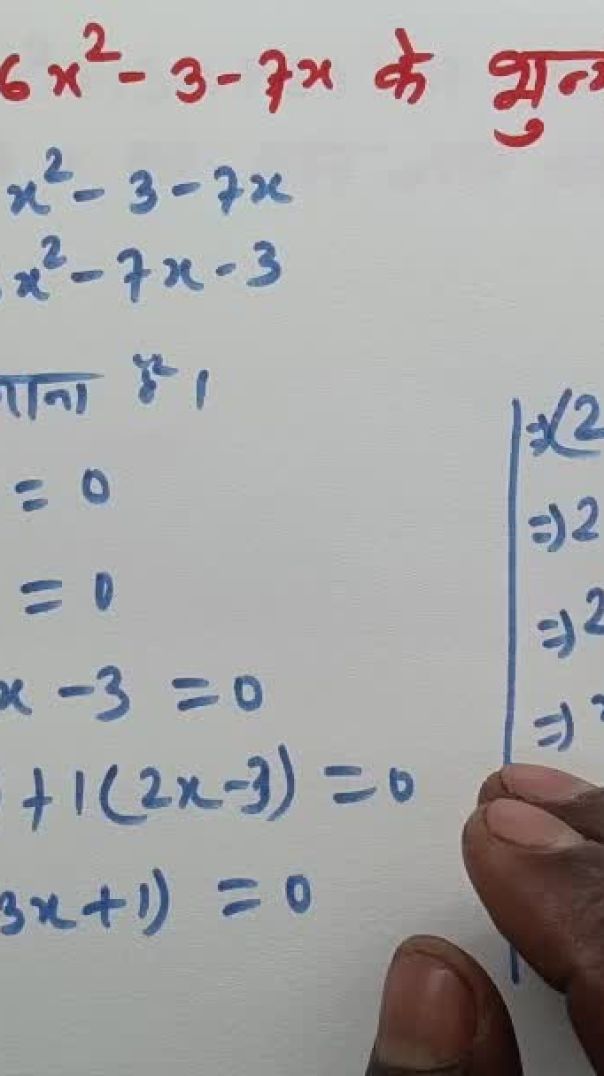 6x² - 3 - 7x के
x² - 3 - 7x
x² - 7x - 3
= 0
= 0
x - 3 = 0
+ 1(2x - 3) = 0
3x + 1) = 0
⇒ (2
⇒ 2
⇒ 2
⇒